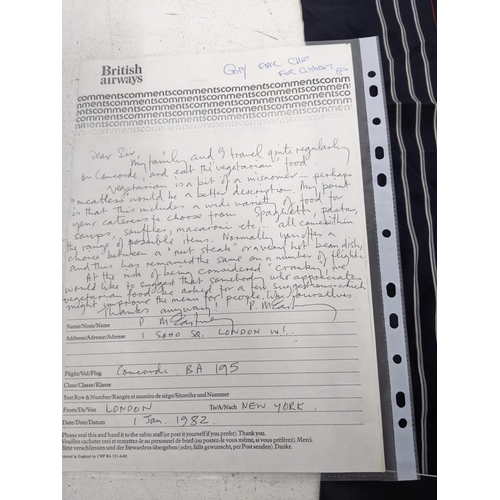 British
airways
Copy
FOR COMMENT
commentscommentscommentscomments
mentscommentscommentscommentscom
commentscommentscommentscomments
mentscommentscommentscommentscom
Dear Sir,
My family and I travel quite regularly
on Concorde, and eat the vegetarian food.
Vegetarian is a bit of a misnomer - perhaps
"meatless" would be a better description. My point
is that this includes a wide variety of food for
your caterers to choose from. Spaghetti, pastas,
soups, souffles, macaroni etc... all come within
the range of possible items. Normally you offer a
choice between a "nut steak" or a very hot bean dish,
and this has remained the same on a number of flights.
At the risk of being considered "cranky", we
would like to suggest that somebody who appreciates
vegetarian food be asked for a few suggestions which
might improve the menu for people like ourselves.
Thanks anyway! P. McCartney
Name/Nom/Name P McCartney
Address/Adresse/Adresse 1 SOHO SQ. LONDON W1.
Flight/Vol/Flug Concorde BA 195
Class/Classe/Klasse
Seat Row & Number/Rangée et numéro de siège/Sitzreihe und Nummer
From/De/Von LONDON To/A/Nach NEW YORK.
Date/Date/Datum 1 Jan. 1982.
Please seal this and hand it to the cabin staff (or post it yourself if you prefer). Thank you.
Veuillez cacheter ceci et remettez-le au personnel de bord (ou postez-le vous-même, si vous préférez). Merci.
Bitte verschliessen und der Stewardess übergeben (oder, falls gewünscht, per Post senden). Danke.